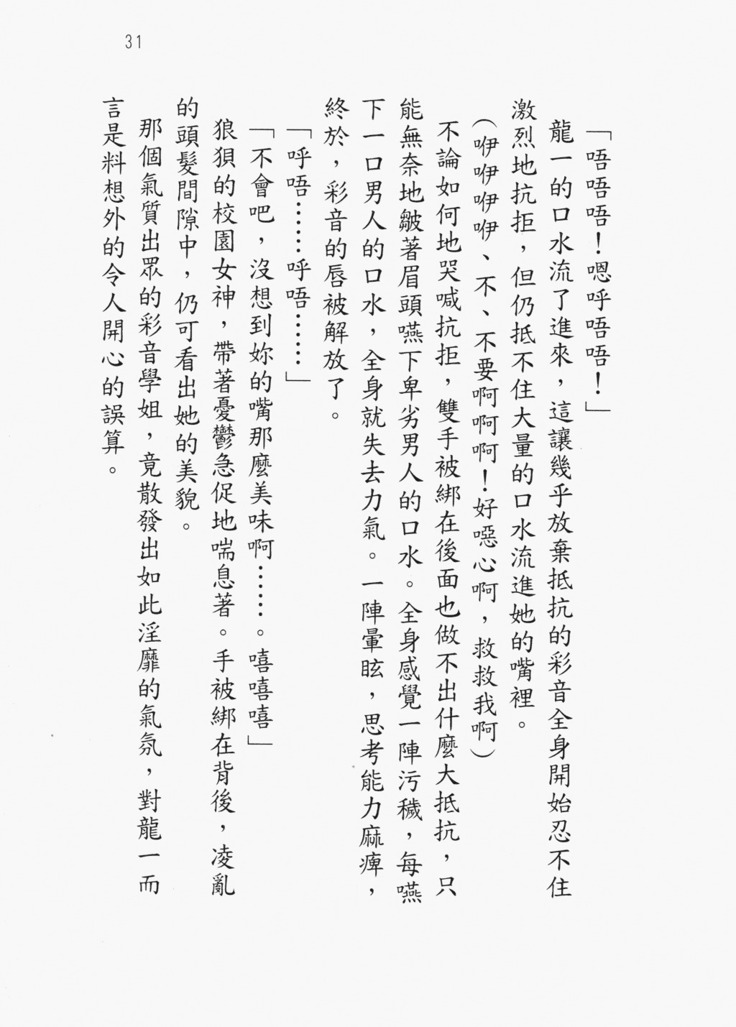 31
「唔唔唔！嗯呼唔唔！」
龍一的口水流了進來，這讓幾乎放棄抵抗的彩音全身開始忍不住
激烈地抗拒，但仍抵不住大量的口水流進她的嘴裡。
（咿咿咿咿、不、不要啊啊啊！好噁心啊，救救我啊）
不論如何地哭喊抗拒，雙手被綁在後面也做不出什麼大抵抗，只
能無奈地皺著眉頭嚥下卑劣男人的口水。全身感覺一陣污穢，每嚥
下一口男人的口水，全身就失去力氣。一陣暈眩，思考能力麻痺，
終於，彩音的唇被解放了。
「呼唔……呼唔……」
「不會吧，沒想到妳的嘴那麼美味啊……。嘻嘻嘻」
狼狽的校園女神，帶著憂鬱急促地喘息著。手被綁在背後，凌亂
的頭髮間隙中，仍可看出她的美貌。
那個氣質出眾的彩音學姐，竟散發出如此淫靡的氣氛，對龍一而
言是料想外的令人開心的誤算。